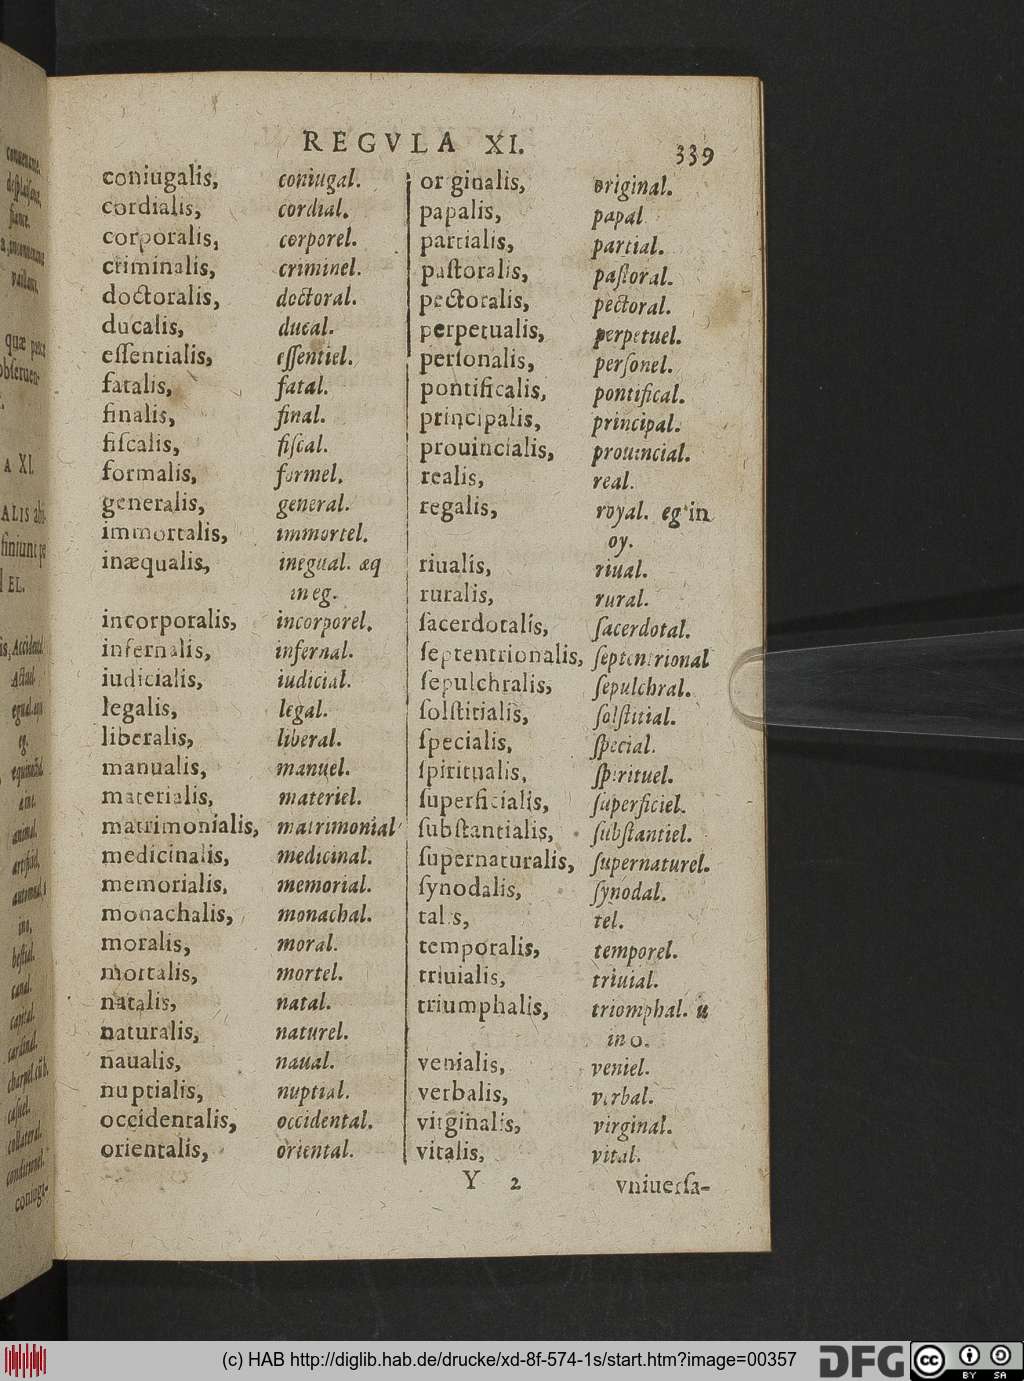 REGVLA XI.
339
coniugalis, coniugal.
cordialis, cordial.
corporalis, corporel.
criminalis, criminel.
doctoralis, doctoral.
ducalis, ducal.
eſſentialis, eſſentiel.
fatalis, fatal.
finalis, final.
fiſcalis, fiſcal.
formalis, formel.
generalis, general.
immortalis, immortel.
inæqualis, inegual. æq
in eg.
incorporalis, incorporel.
infernalis, infernal.
iudicialis, iudicial.
legalis, legal.
liberalis, liberal.
manualis, manuel.
materialis, materiel.
matrimonialis, matrimonial
medicinalis, medicinal.
memorialis, memorial.
monachalis, monachal.
moralis, moral.
mortalis, mortel.
natalis, natal.
naturalis, naturel.
naualis, naual.
nuptialis, nuptial.
occidentalis, occidental.
orientalis, oriental.
originalis, original.
papalis, papal
partialis, partial.
paſtoralis, paſtoral.
pectoralis, pectoral.
perpetualis, perpetuel.
perſonalis, perſonel.
pontificalis, pontifical.
principalis, principal.
prouincialis, prouincial.
realis, real.
regalis, royal. eg in
oy.
riualis, riual.
ruralis, rural.
ſacerdotalis, ſacerdotal.
ſeptentrionalis, ſeptentrional
ſepulchralis, ſepulchral.
ſolſtitialis, ſolſtitial.
ſpecialis, ſpecial.
ſpiritualis, ſpirituel.
ſuperficialis, ſuperficiel.
ſubſtantialis, ſubſtantiel.
ſupernaturalis, ſupernaturel.
ſynodalis, ſynodal.
talis, tel.
temporalis, temporel.
triuialis, triuial.
triumphalis, triomphal. u
in o.
venialis, veniel.
verbalis, verbal.
virginalis, virginal.
vitalis, vital.
Y 2
vniuerſa-
(c) HAB http://diglib.hab.de/drucke/xd-8f-574-1s/start.htm?image=00357
DFG
cc
BY SA